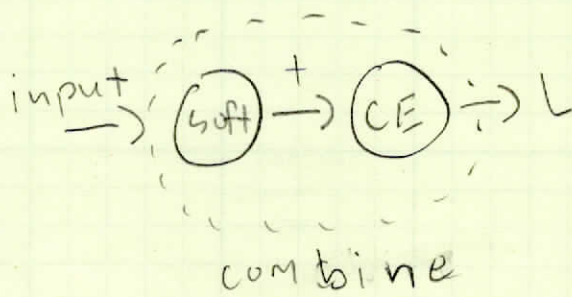 input soft + CE L
combine